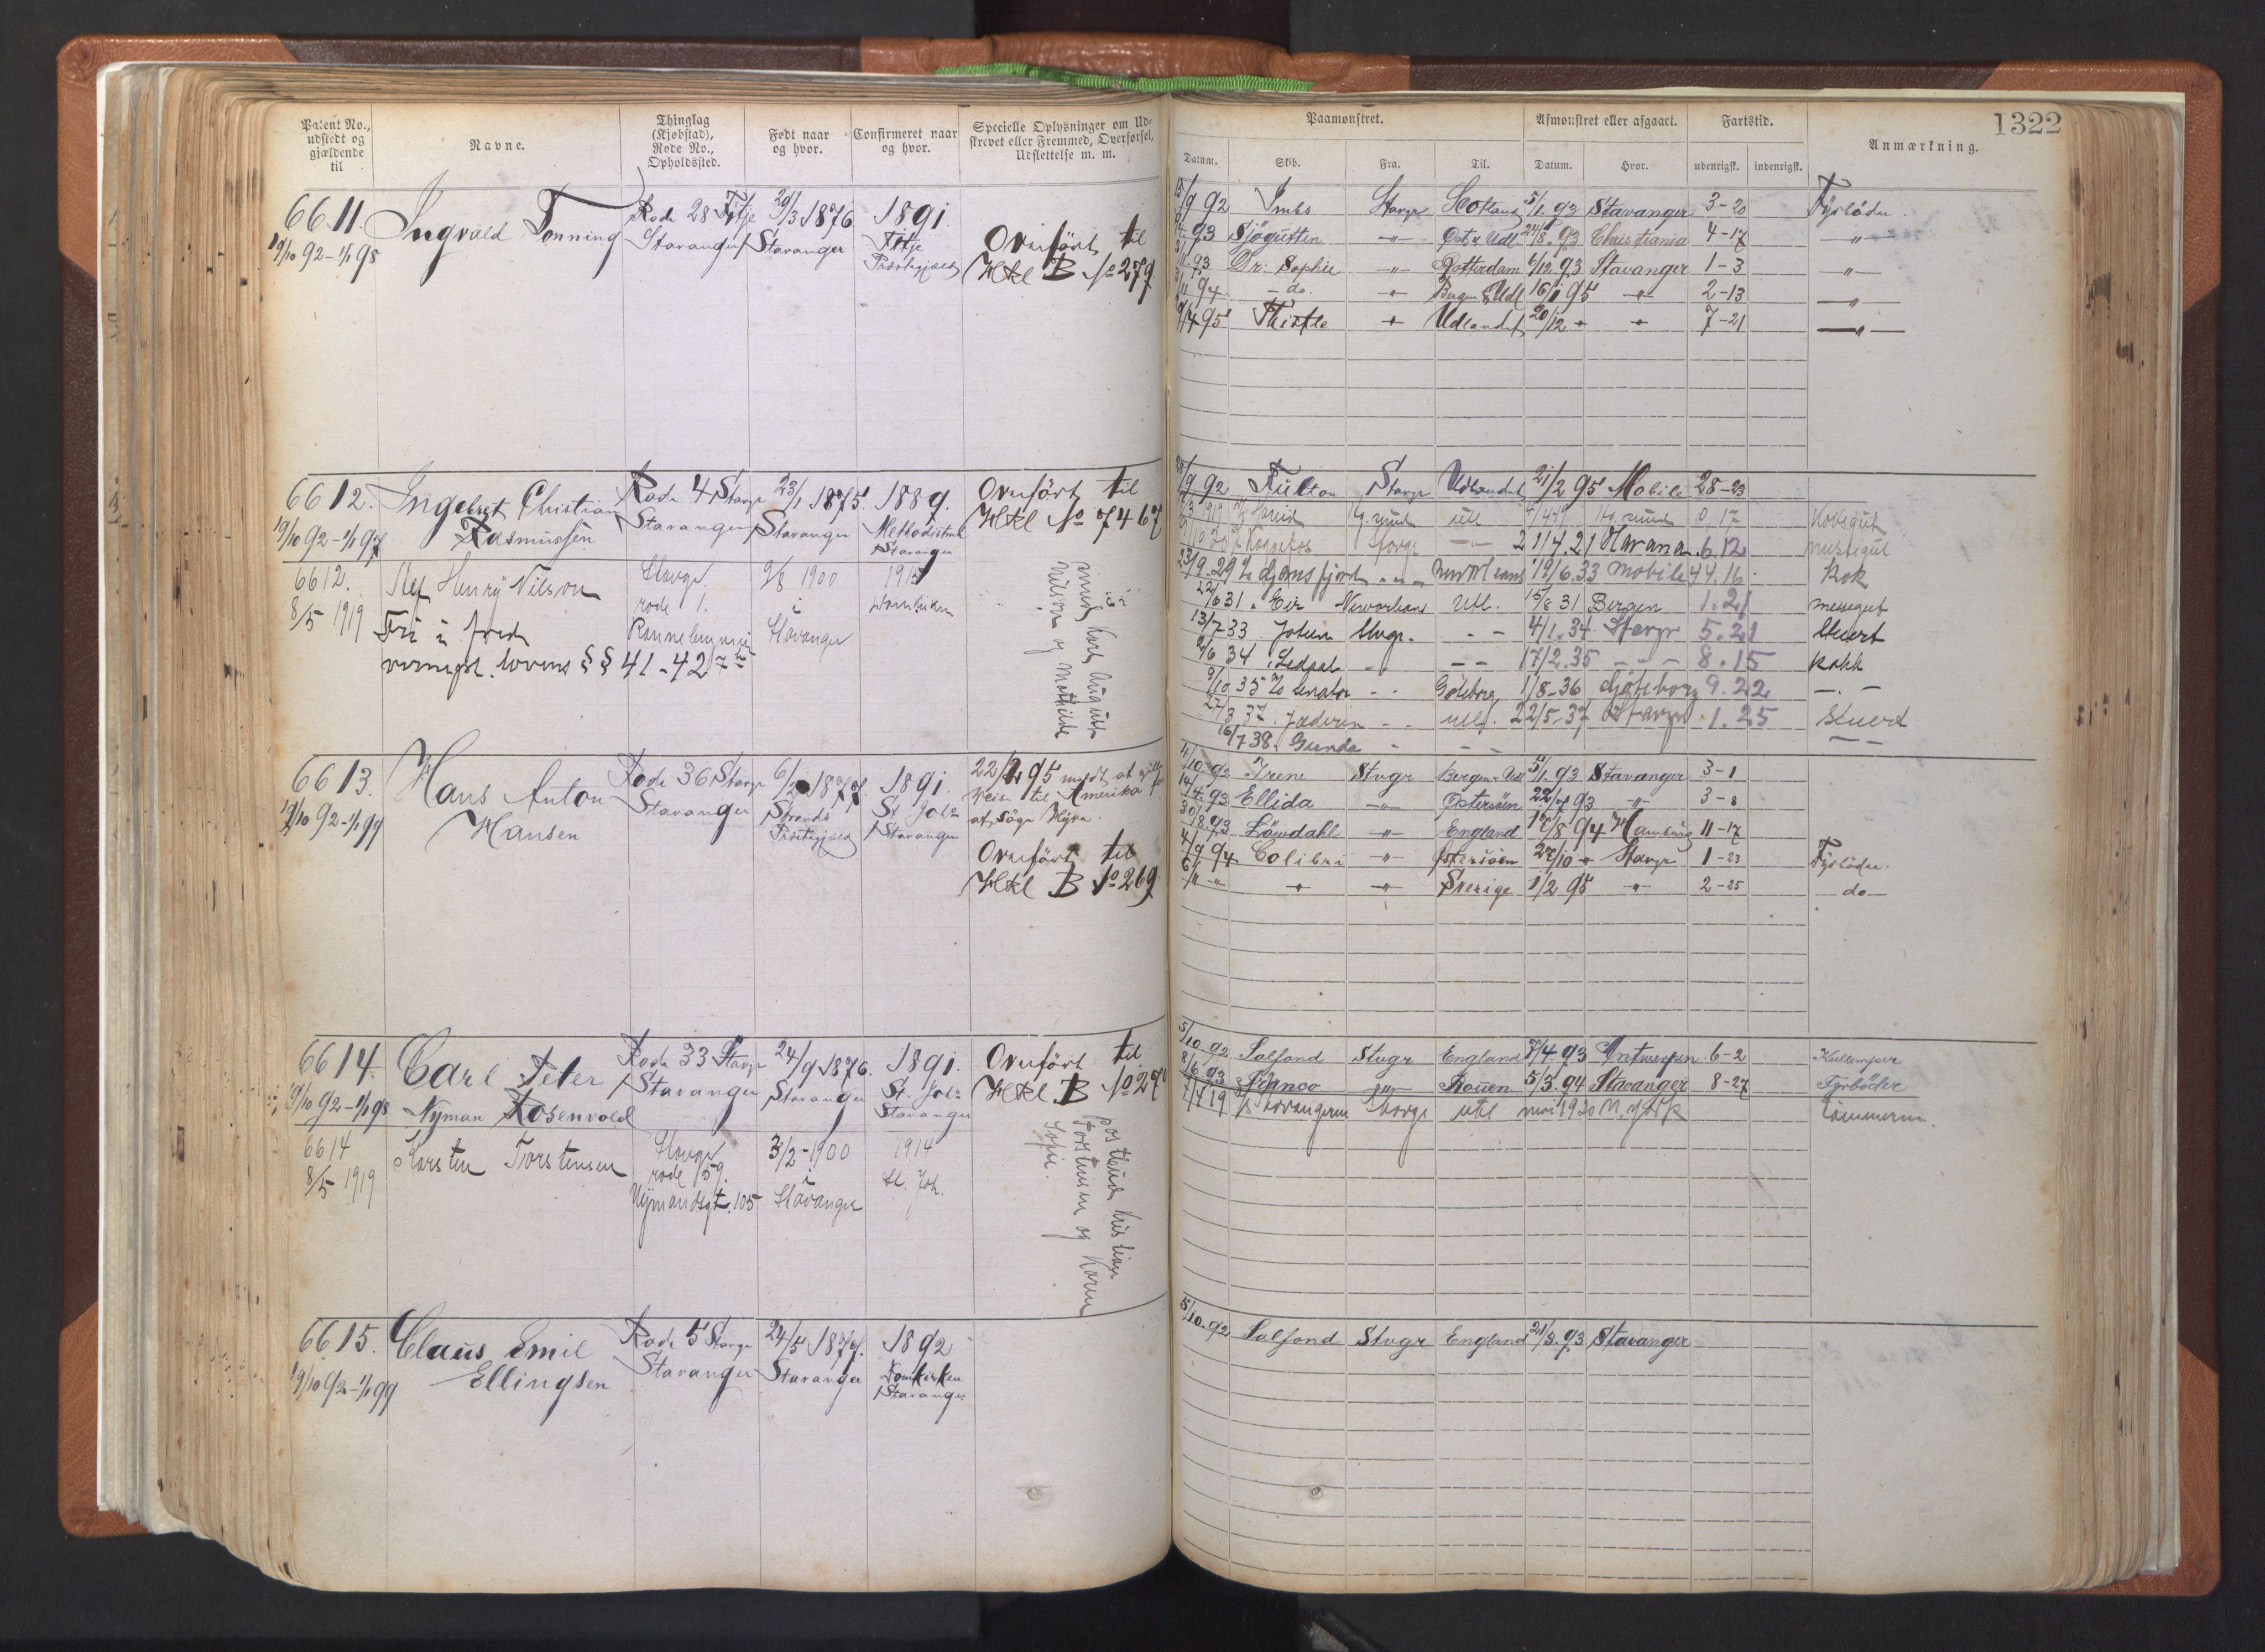 1322
Patent No., udstedt og gjældende til
Navne.
Thinglag (Kjøbstad), Rode No., Opholdssted.
Født naar og hvor.
Confirmeret naar og hvor.
Specielle Oplysninger om Udskrevet eller Fremmed, Overførsel, Udslettelse m. m.
Paamønstret.
Afmønstret eller afgaaet.
Fartstid.
Anmærkning.
Datum. Skib. Fra. Til. Datum. Hvor. udenrigsk. indenrigsk.
6611. Ingvald Tonning Rode 28 Fitje 29/3 1876 1891.
19/10 92-1/1 98 Stavanger Stavanger Fitje
Præstegjæld
Overført til
Htkl B No 279
9 92 Imbs Stavgr Scotland 5/1. 93 Stavanger 3-20 Fyrböder.
93 Sjögutten -"- Öst. & Udl 24/8. 93 Christiania 4-17 -"-
93 Dr: Sophie -"- Rotterdam 6/12. 93 Stavanger 1-3 -"-
94 - do. -"- Bergen & Udl 16/1 95 -"- 2-13 -"-
4 95 Thistle + Udlandet 20/12 + + 7-21 -"-
6612. Ingebret Christian Rode 4 Stavgr 23/1 1875. 1889. Overført til
19/10 92-1/1 97 Rasmussen Stavanger Stavanger Methodistmk Htkl No 7467
Stavanger
6612. Alf Henry Nilson Stavgr. 9/8 1900 1915
8/5 1919 rode 1. i Domkirken
Fri i fred Stavanger
vernepl. lovens §§ 41-42
Karl August
Nilson og Mathilde
9 92 Fulton Stavgr Udlandet 21/2 95 Mobile 28-23
1919 utl 0.17
21/4.21 Havana 6.12
23/9.29 19/6.33 Mobile 44.16 Kok
22/6 31 Eir Neworleans Utl. 15/8 31 Bergen 1.21 messegut
13/7 33 Jotun Stvgr. - - 4/1.34 Stavgr 5.21 Stuert
9/6 34 Ledaal - - - 17/2.35 - " - 8.15 Kokk
9/10 35 Senator - - Göteborg 1/8-36 Göteborg 9.22 - . -
27/3 37. Jæderen - - utl. 22/5-37 Stavgr 1.25 Stuert
16/7 38. Gunda - - - - -
6613. Hans Anton Rode 36 Stavgr 6/2 1877. 1891.
19/10 92-1/1 99 Hansen Stavanger Strands St. Joh:
Præstegjæld Stavanger
22/2 95
reise til Amerika for
at søge Hyre.
Overført til
Htkl B No 269
4/10 92 Irene Stvgr Bergen & Udl 5/1. 93 Stavanger 3-1
14/4 93 Ellida -"- Östersöen 22/7 93 -"- 3-8
30/8 93 Löwdahl -"- England 17/8 94 Hamburg 11-17
4/9 94 Colibri -"- Östersöen 27/10 + Stavgr 1-23 Fyrböder.
6/11 -"- + -"- Sverige 1/2 95 -"- 2-25 - do -
6614. Carl Peter Rode 33 Stavgr 24/9 1876. 1891. Overført til
19/10 92-1/1 98 Nyman Rosenvold Stavanger Stavanger St. Joh: Htkl B No 270
Stavanger
6614 Karsten Torstensen Stavgr 3/2-1900 1914
8/5 1919 rode 159. i St. Joh.
Nymandsgt. 105 Stavanger
postbud Kristian
Torstensen og Karen
Sofie.
5/10 92 Salfond Stvgr England 7/4. 93 Antwerpen 6-2 Kullemper
8/6 93 Franco -"- Rouen 5/3. 94 Stavanger 8-27 Fyrböder
19 Stavangeren Stavgr utl 1920 N. York tömmerm.
6615. Claus Emil Rode 5 Stavgr 24/5 1877. 1892
19/10 92-1/1 99 Ellingsen Stavanger Stavanger Domkirken
Stavanger
5/10. 92 Salfond Stvgr England 21/3. 93 Stavanger